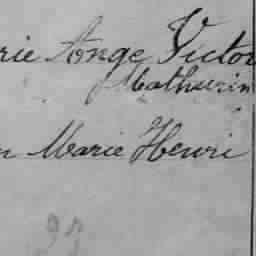 rie Ange Victor
Mathurin
n Marie Henri